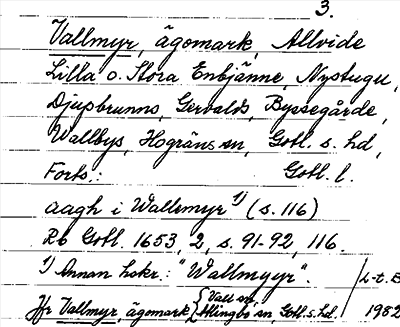 3.
Vallmyr, ägomark, Allvide
Lilla o. Stora Enbjänne, Nystugu,
Djupbrunns, Gervalds, Byssegårde,
Wallbys, Hogräns sn, Gotl. s. hd,
Forts.: Gotl. l.
aagh i Wallemyr 1) (s. 116)
Rb Gotl. 1653, 2, s. 91-92, 116.
1) Annan hskr.: "Wallmyyr". L-t. B
Jfr Vallmyr, ägomark { Vall sn, Atlingbo sn, Gotl. s. hd. 1982